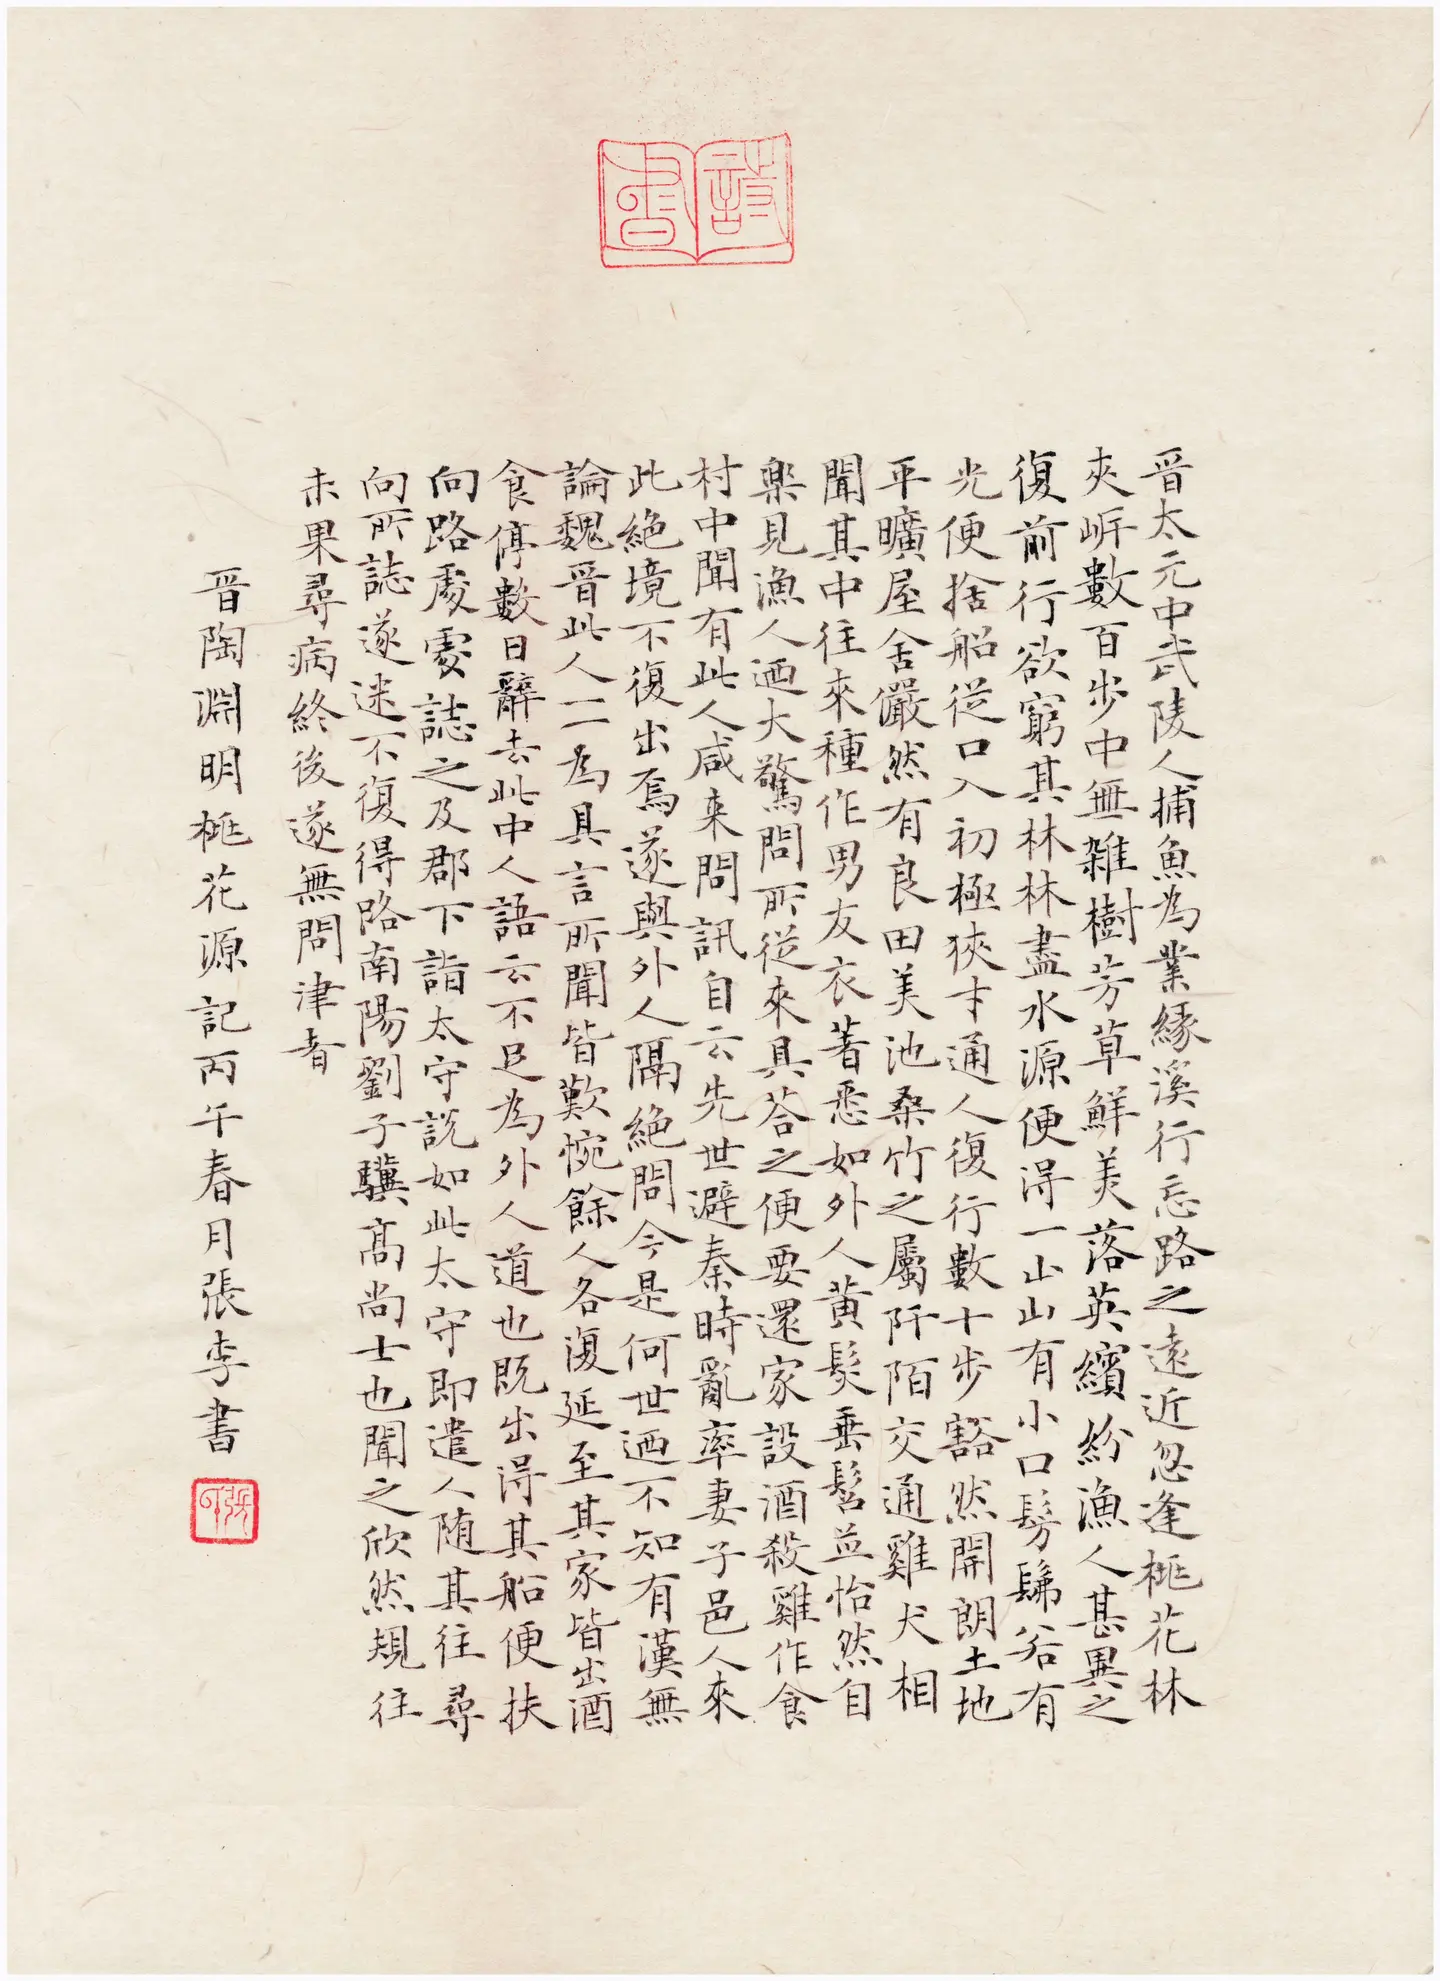 詩書
晉太元中武陵人捕魚為業緣溪行忘路之遠近忽逢桃花林
夾岸數百步中無雜樹芳草鮮美落英繽紛漁人甚異之
復前行欲窮其林林盡水源便得一山山有小口髣髴若有
光便捨船從口入初極狹才通人復行數十步豁然開朗土地
平曠屋舍儼然有良田美池桑竹之屬阡陌交通雞犬相
聞其中往來種作男友衣著悉如外人黃髮垂髫並怡然自
樂見漁人迺大驚問所從來具荅之便要還家設酒殺雞作食
村中聞有此人咸来問訊自云先世避秦時亂率妻子邑人來
此絕境不復出焉遂與外人隔絕問今是何世迺不知有漢無
論魏晉此人一一為具言所聞皆歎惋餘人各復延至其家皆出酒
食停數日辭去此中人語云不足為外人道也既出得其船便扶
向路處處誌之及郡下詣太守說如此太守即遣人随其往尋
向所誌遂迷不復得路南陽劉子驥高尚士也聞之欣然規往
未果尋病終後遂無問津者
晉陶淵明桃花源記丙午春月張李書
張